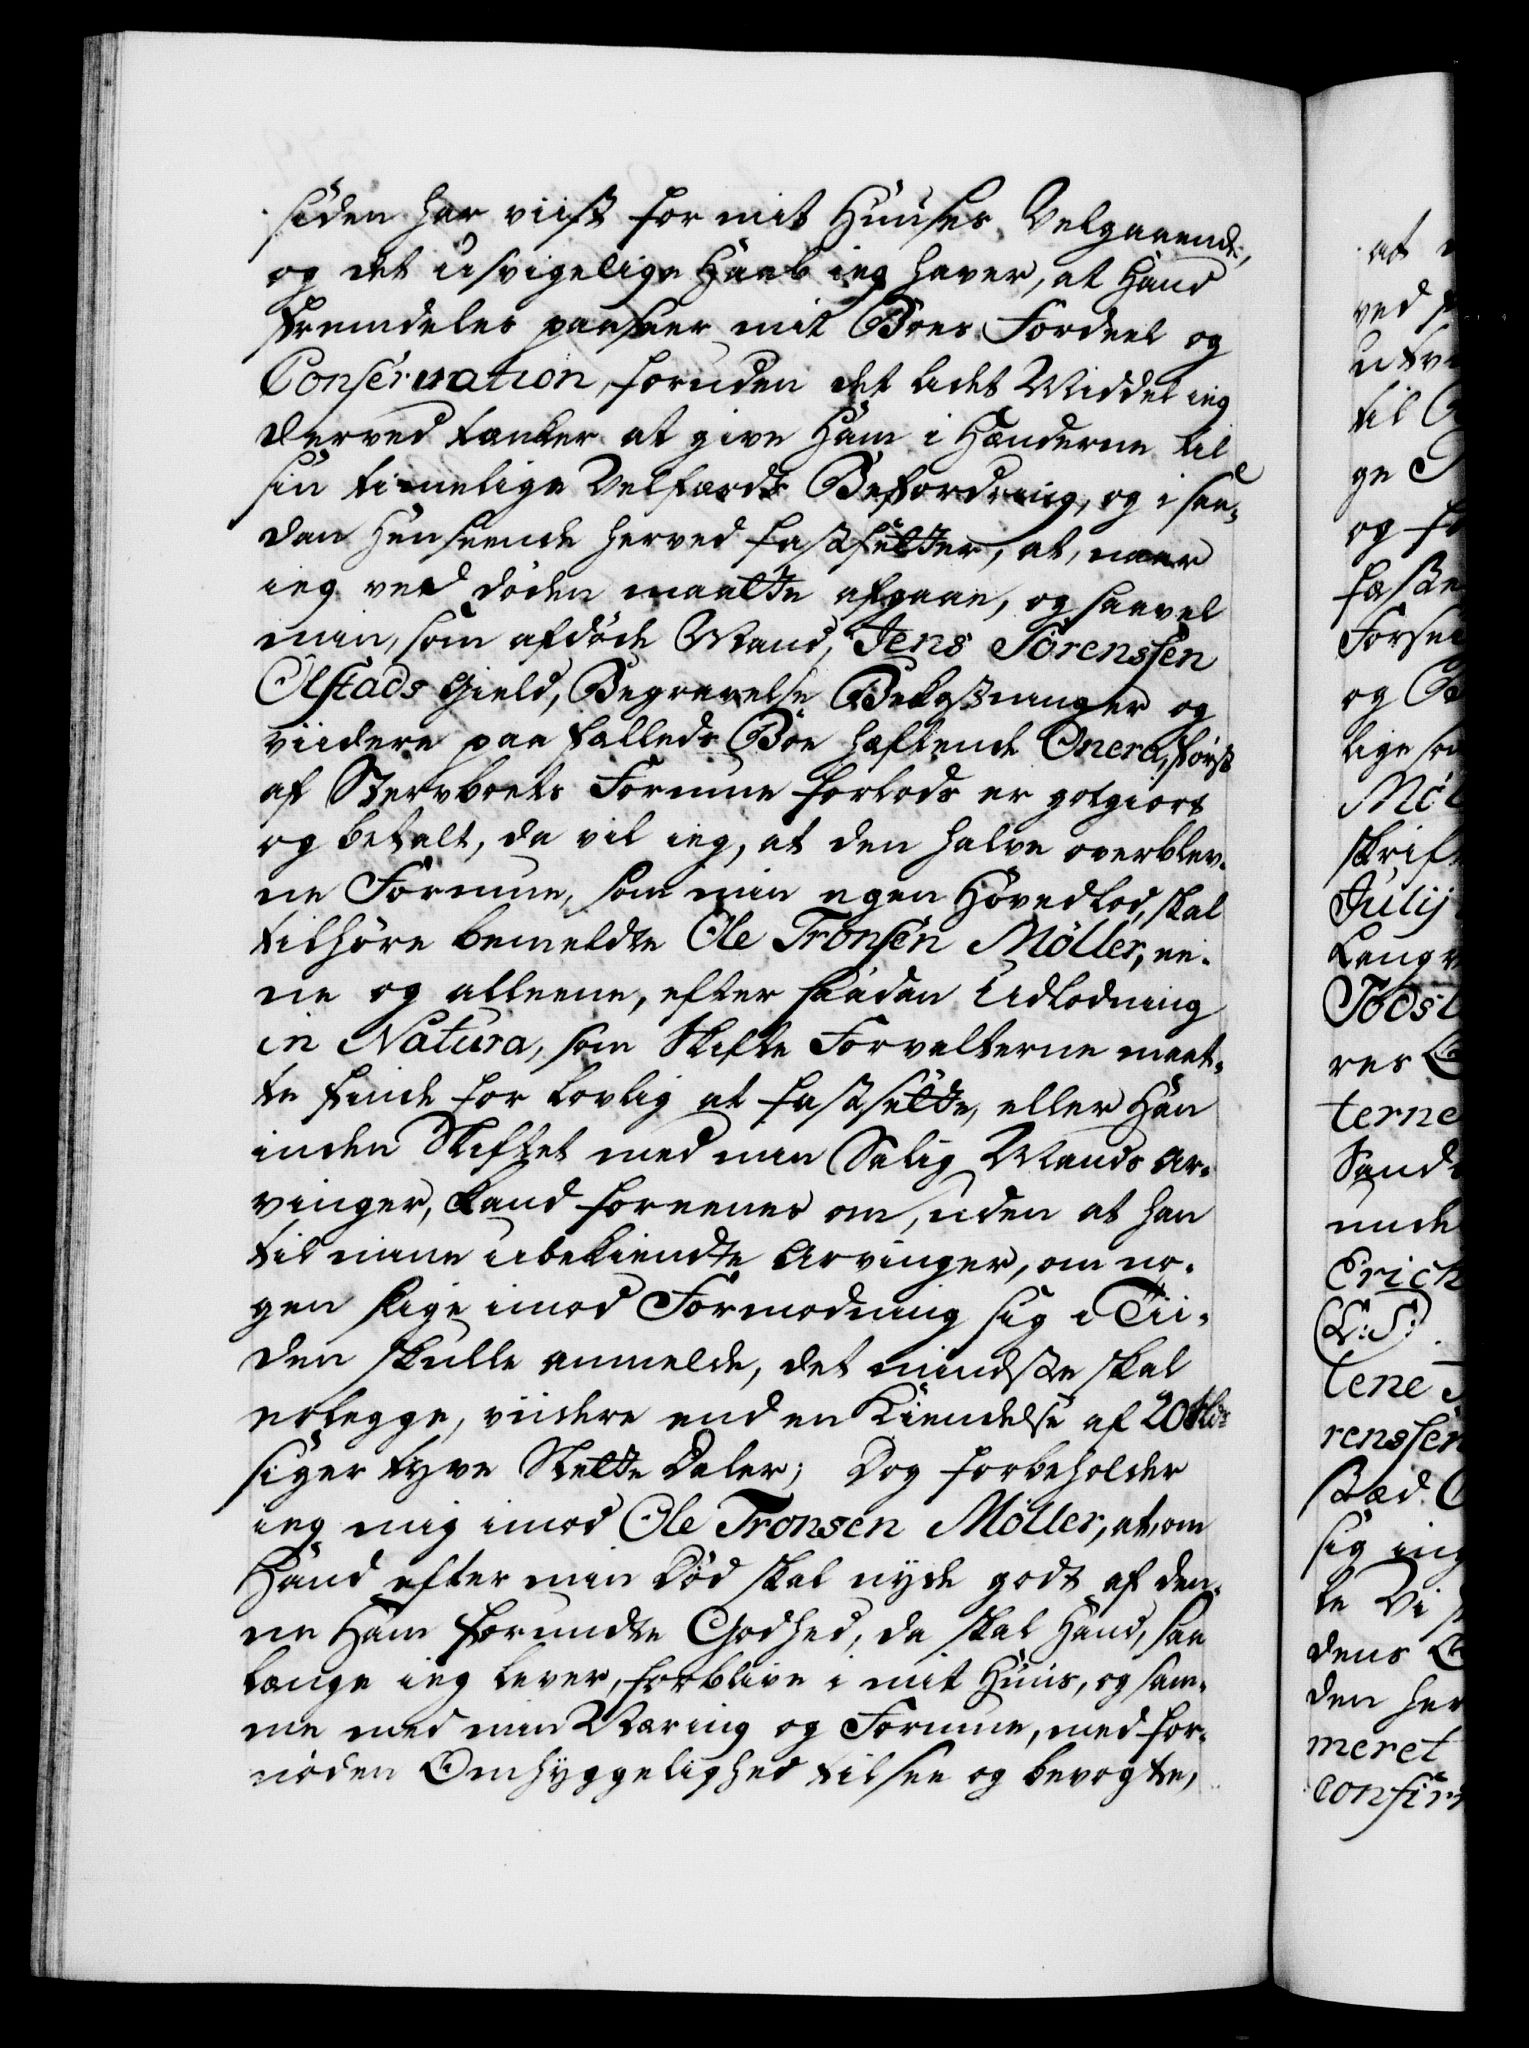 siden har viist for mit Huuses Velgaaende,
og det usvigelige Haab ieg haver, at Hand
fremdeles paaseer mit Boes Fordeel og
Conservation, foruden det lidet Middel ieg
derved tænker at give Ham i Hænderne til
sin timelige Velfærds Befordring, og i saa-
dan Henseende herved fastsetter, at, naar
ieg ved døden maatte afgaae, og saavel
min, som afdøde Mand, Jens Sørenssen
Ølstads Gield, Begravelse Bekostninger og
viidere paa fælleds Boe hæftende Onera, først
af Stervboets Formue forlods er godgiort
og betalt, da vil ieg, at den halve overblev-
ne Formue, som min egen Hovedlod, skal
tilhøre bemeldte Ole Tronsen Møller, ee-
ne og alleene, efter saadan Udlodning
in Natura, som Skifte Forvalterne maat-
te finde for lovlig at fastsette, eller Han
inden Skiftet med min Salig Mands Ar-
vinger, kand foreenes om, uden at han
til mine ubekiendte Arvinger, om no-
gen slige imod Formodning sig i Tii-
den skulle anmelde, det mindste skal
erlegge, viidere end en Kiendelse af 20 Sldr
siger tyve Slette Daler; Dog forbeholder
ieg mig imod Ole Tronsen Møller, at, om
Hand efter min Død skal nyde godt af den-
ne Ham forundte Godhed, da skal Hand, saa
længe ieg lever, forblive i mit Huus, og sam-
me med min Næring og Formue, med for-
nøden Omhyggelighed tilsee og bevogte,
at
ved
til
ge
og
Forse
og
lige som
Møl
skrift
Julij
res
terne
Sand
Erich
(L:S:)
lene
renssen
sted
sig ing
le Vi
dens
den her
meret
confir